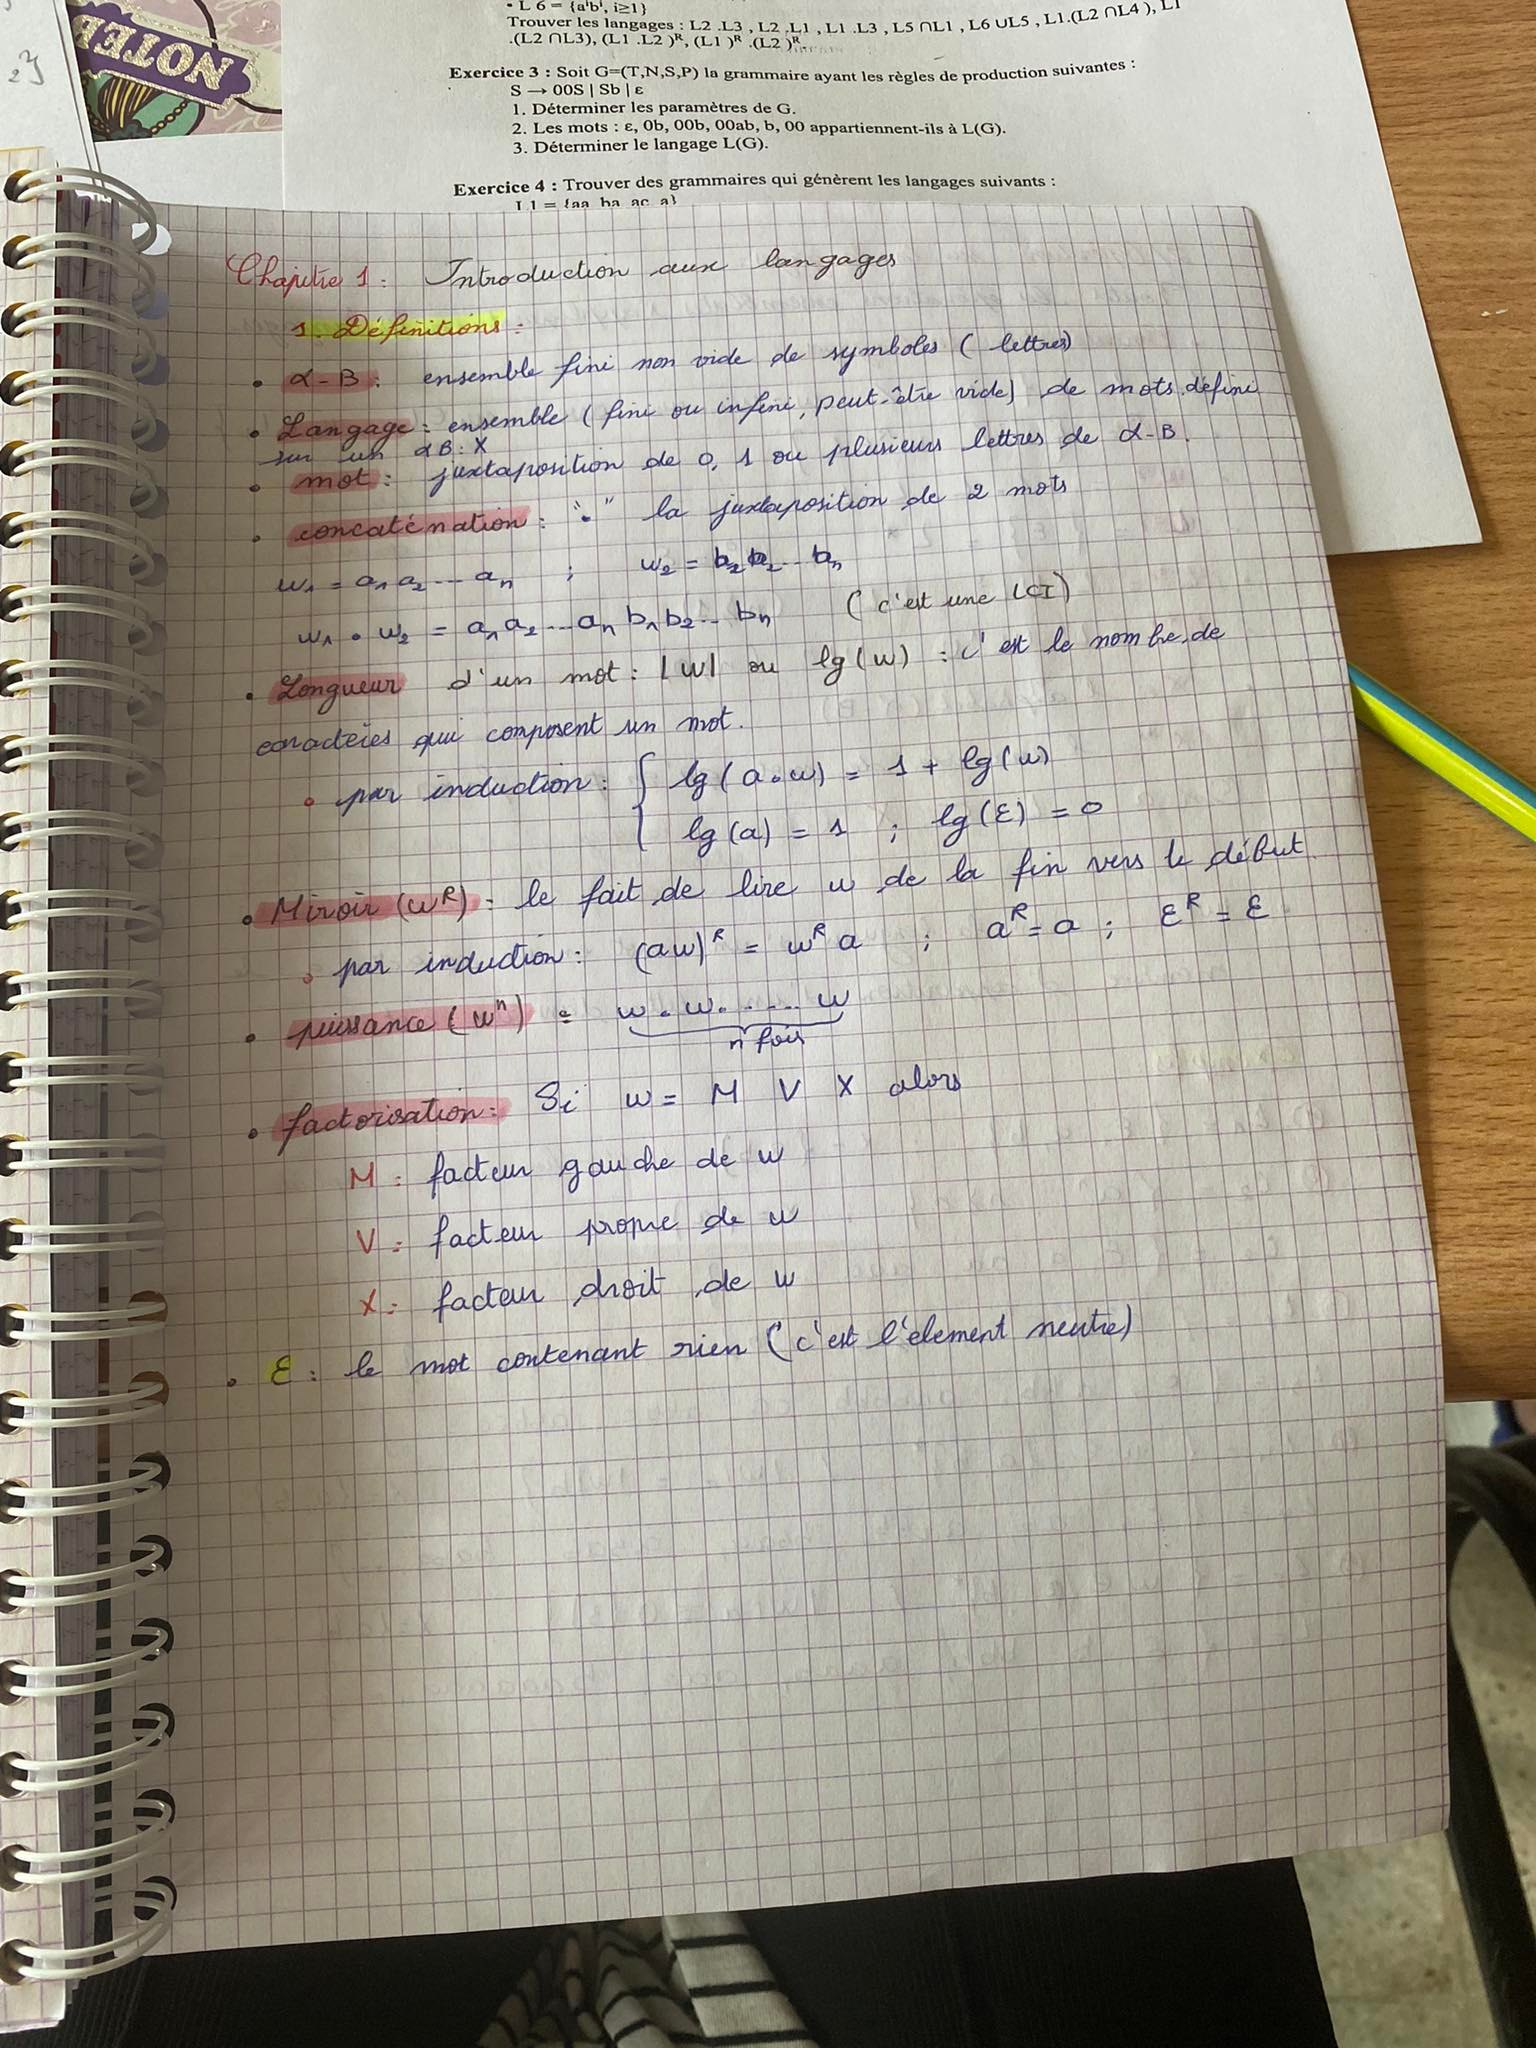 NOTE
2}
• L 6 = {aⁱbⁱ, i≥1}
Trouver les langages : L2 .L3 , L2 .L1 , L1 .L3 , L5 ∩L1 , L6 ∪L5 , L1.(L2 ∩L4 ), L1
.(L2 ∩L3), (L1 .L2 )ᴿ, (L1 )ᴿ .(L2 )ᴿ.
Exercice 3 : Soit G=(T,N,S,P) la grammaire ayant les règles de production suivantes :
S → 00S | Sb | ε
1. Déterminer les paramètres de G.
2. Les mots : ε, 0b, 00b, 00ab, b, 00 appartiennent-ils à L(G).
3. Déterminer le langage L(G).
Exercice 4 : Trouver des grammaires qui génèrent les langages suivants :
L1 = {aa, ba, ac, a}
Chapitre 1 : Introduction aux langages
1. Définitions :
• α-B : ensemble fini non vide de symboles ( lettres)
• Langage : ensemble ( fini ou infini, peut-être vide) de mots défini
sur un αB : X
• mot : juxtaposition de 0, 1 ou plusieurs lettres de α-B.
• concaténation : "•" la juxtaposition de 2 mots
w₁ = a₁ a₂ ... aₙ ; w₂ = b₂ b₂ ... bₙ
w₁ • w₂ = a₁ a₂ ... aₙ b₁ b₂ ... bₙ ( c'est une LCI)
• Longueur d'un mot : |w| ou lg(w) : c'est le nombre de
caractères qui composent un mot.
• par induction : { lg(a•w) = 1 + lg(w)
lg(a) = 1 ; lg(ε) = 0
• Miroir (wᴿ) = le fait de lire w de la fin vers le début
• par induction : (aw)ᴿ = wᴿ a ; aᴿ = a ; εᴿ = ε
• puissance (wⁿ) = w . w . .... w
n fois
• factorisation : Si w = M V X alors
M : facteur gauche de w
V : facteur propre de w
X : facteur droit de w
• ε : le mot contenant rien (c'est l'élement neutre)